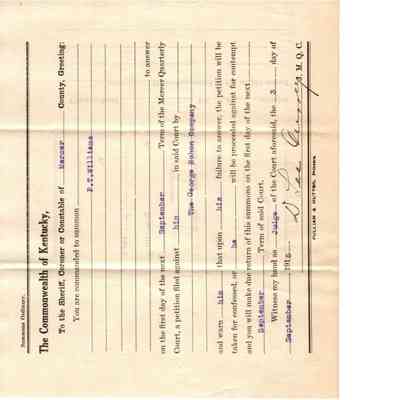 Summons Ordinary.
The Commonwealth of Kentucky,
To the Sheriff, Coroner or Constable of Mercer County, Greeting:
You are commanded to summon
P.T.Williams
to answer
on the first day of the next September Term of the Mercer Quarterly
Court, a petition filed against him in said Court by
The George Bohon Company
and warn him that upon his failure to answer, the petition will be
taken for confessed, or he will be proceeded against for contempt
and you will make due return of this summons on the first day of the next
September Term of said Court.
Witness my hand as Judge of the Court aforesaid, the 3 day of
September 191
J. M. Q. C.
PULLIAM & HUTTON, PRINTERS